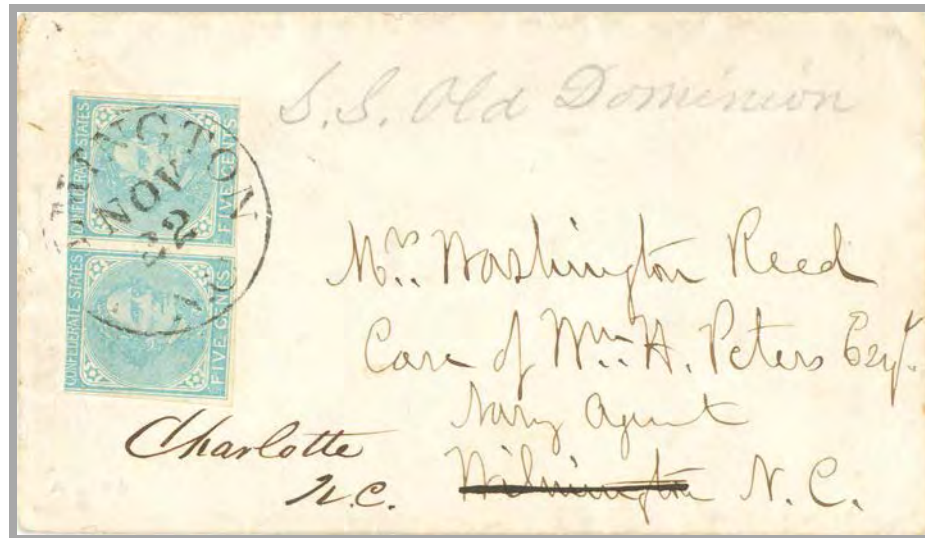 S.S. Old Dominion
CONFEDERATE STATES
FIVE CENTS
CONFEDERATE STATES
FIVE CENTS
NOV
22
Mr. Washington Reed
Care of Wm. H. Peters Esqr.
Navy Agent
Wilmington N.C.
Charlotte
N.C.